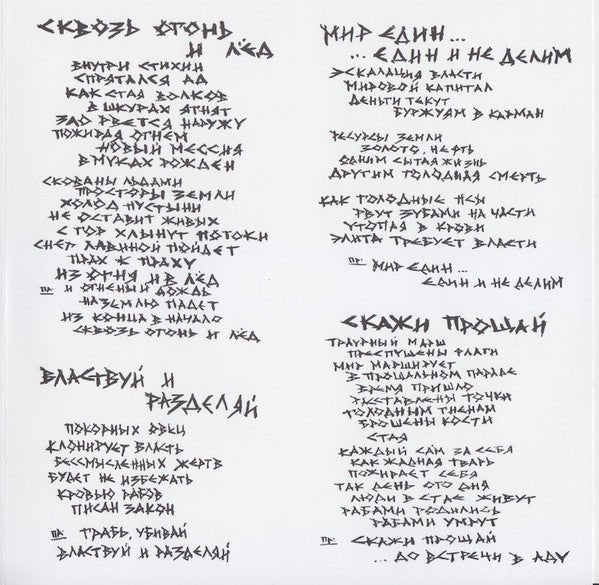 СКВОЗЬ ОГОНЬ
И ЛЁД
ВНУТРИ СТИХИИ
СПРЯТАЛСЯ АД
КАК СТАЯ ВОЛКОВ
В ШКУРАХ ЯГНЯТ
ЗЛО РВЕТСЯ НАРУЖУ
ПОЖИРАЯ ОГНЕМ
НОВЫЙ МЕССИЯ
В МУКАХ РОЖДЕН
СКОВАНЫ ЛЬДАМИ
ПРОСТОРЫ ЗЕМЛИ
ХОЛОД ПУСТЫНИ
НЕ ОСТАВИТ ЖИВЫХ
С ГОР ХЛЫНУТ ПОТОКИ
СНЕГ ЛАВИНОЙ ПОЙДЕТ
ПРАХ К ПРАХУ
ИЗ ОГНЯ И В ЛЁД
ПР: И ОГНЕНЫЙ ДОЖДЬ
НА ЗЕМЛЮ ПАДЕТ
ИЗ КОНЦА В НАЧАЛО
СКВОЗЬ ОГОНЬ И ЛЁД
ВЛАСТВУЙ И
РАЗДЕЛЯЙ
ПОКОРНЫХ ОВЕЦ
КЛОНИРУЕТ ВЛАСТЬ
БЕССМЫСЛЕННЫХ ЖЕРТВ
БУДЕТ НЕ ИЗБЕЖАТЬ
КРОВЬЮ РАБОВ
ПИСАН ЗАКОН
ПР: ГРАБЬ, УБИВАЙ
ВЛАСТВУЙ И РАЗДЕЛЯЙ
МИР ЕДИН...
... ЕДИН И НЕ ДЕЛИМ
ЭСКАЛАЦИЯ ВЛАСТИ
МИРОВОЙ КАПИТАЛ
ДЕНЬГИ ТЕКУТ
БУРЖУЯМ В КАРМАН
РЕСУРСЫ ЗЕМЛИ
ЗОЛОТО, НЕФТЬ
ОДНИМ СЫТАЯ ЖИЗНЬ
ДРУГИМ ГОЛОДНАЯ СМЕРТЬ
КАК ГОЛОДНЫЕ ПСЫ
РВУТ ЗУБАМИ НА ЧАСТИ
УТОПАЯ В КРОВИ
ЭЛИТА ТРЕБУЕТ ВЛАСТИ
ПР: МИР ЕДИН...
ЕДИН И НЕ ДЕЛИМ
СКАЖИ ПРОЩАЙ
ТРАУРНЫЙ МАРШ
ПРЕСПУЩЕНЫ ФЛАГИ
МИР МАРШИРУЕТ
В ПРОЩАЛЬНОМ ПАРАДЕ
ВРЕМЯ ПРИШЛО
РАССТАВЛЕНЫ ТОЧКИ
ГОЛОДНЫМ ГИЕНАМ
БРОШЕНЫ КОСТИ
СТАЯ
КАЖДЫЙ САМ ЗА СЕБЯ
КАК ЖАДНАЯ ТВАРЬ
ПОЖИРАЕТ СЕБЯ
ТАК ДЕНЬ ОТО ДНЯ
ЛЮДИ В СТАЕ ЖИВУТ
РАБАМИ РОДИЛИСЬ
РАБАМИ УМРУТ
ПР: СКАЖИ ПРОЩАЙ
... ДО ВСТРЕЧИ В АДУ